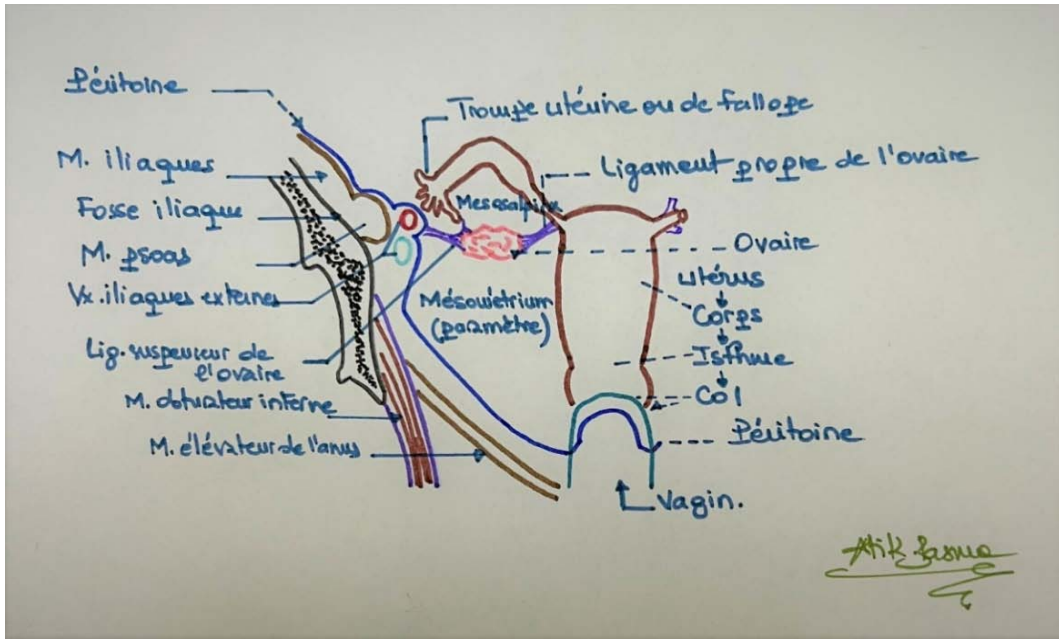 Péritoine
M. iliaques
Fosse iliaque
M. psoas
Vx. iliaques externes
Lig. suspenseur de
l'ovaire
M. obturateur interne
M. élévateur de l'anus
Trompe utérine ou de fallope
Ligament propre de l'ovaire
Mesosalpinx
Ovaire
Mésométrium
(paramètre)
utérus
Corps
Isthme
Col
Péritoine
Vagin.
Atik